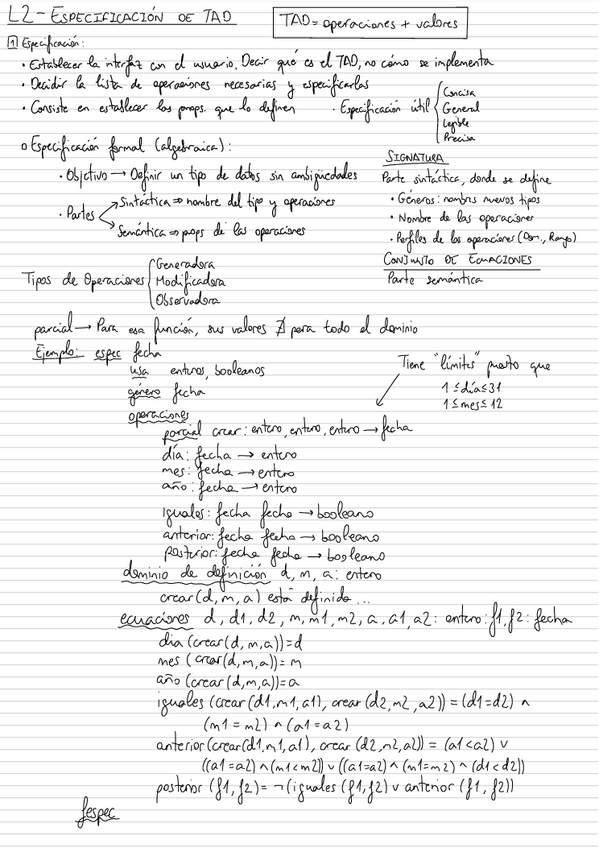 L2-ESPECIFICACIÓN DE TAD
TAD = operaciones + valores
1 Especificación:
· Establecer la interfaz con el usuario. Decir qué es el TAD, no cómo se implementa
· Decidir la lista de operaciones necesarias y especificarlas
· Consiste en establecer las props. que lo definen · Especificación útil { Concisa
General
Legible
Precisa
o Especificación formal (algebraica):
· Objetivo → Definir un tipo de datos sin ambigüedades
· Partes → Sintáctica ⇒ nombre del tipo y operaciones
→ Semántica ⇒ props de las operaciones
SIGNATURA
Parte sintáctica, donde se define
· Géneros: nombres nuevos tipos
· Nombre de las operaciones
· Perfiles de las operaciones (Dom., Rango)
CONJUNTO DE ECUACIONES
Parte semántica
Tipos de Operaciones { Generadora
Modificadora
Observadora
parcial → Para esa función, sus valores ∄ para todo el dominio
Ejemplo: espec fecha
usa enteros, booleanos
género fecha
operaciones
Tiene "límites" puesto que
1≤día≤31
1≤mes≤12
parcial crear: entero, entero, entero → fecha
día: fecha → entero
mes: fecha → entero
año: fecha → entero
iguales: fecha fecha → booleano
anterior: fecha fecha → booleano
posterior: fecha fecha → booleano
dominio de definición d, m, a: entero
crear(d, m, a) está definido...
ecuaciones d, d1, d2, m, m1, m2, a, a1, a2: entero: f1, f2: fecha
dia (crear(d, m, a)) = d
mes (crear(d, m, a)) = m
año (crear(d, m, a)) = a
iguales (crear(d1, m1, a1), crear (d2, m2, a2)) = (d1=d2) ∧
(m1 = m2) ∧ (a1 = a2)
anterior(crear(d1, m1, a1), crear (d2, m2, a2)) = (a1<a2) ∨
((a1=a2) ∧ (m1<m2)) ∨ ((a1=a2) ∧ (m1=m2) ∧ (d1<d2))
posterior (f1, f2) = ¬(iguales (f1, f2) ∨ anterior (f1, f2))
fespec